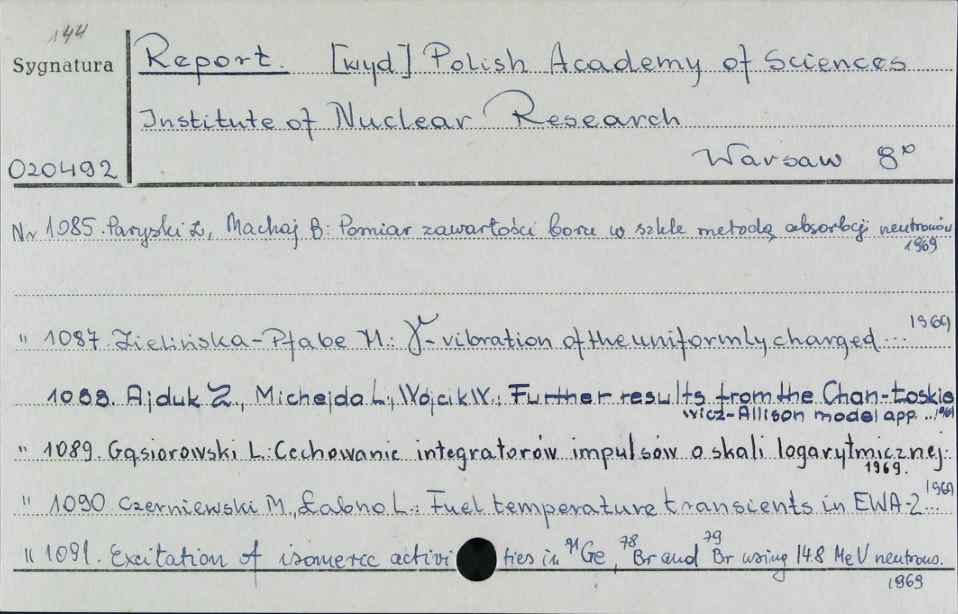 144
Sygnatura
Report. [wyd] Polish Academy of Sciences
Institute of Nuclear Research
Warsaw 8°
020492
Nr 1085. Paryski Z, Machaj B: Pomiar zawartości boru w szkle metodą absorbcji neutronów
1969
" 1087. Zielińska-Pfabe M.: γ-vibration of the uniformly charged... 1969
1088. Ajduk Z., Michejda L., Wójcik W.: Further results from the Chan-Łoskie
wicz-Allison model app...1969
" 1089. Gąsiorowski L.: Cechowanie integratorów impulsów o skali logarytmicznej.
1969.
" 1090 Czerniewski M., Łabno L.: Fuel temperature transients in EWA-2... 1969
" 1091. Excitation of isomeric activities in ⁷¹Ge, ⁷⁸Br and ⁷⁹Br using 14.8 MeV neutrons.
1969